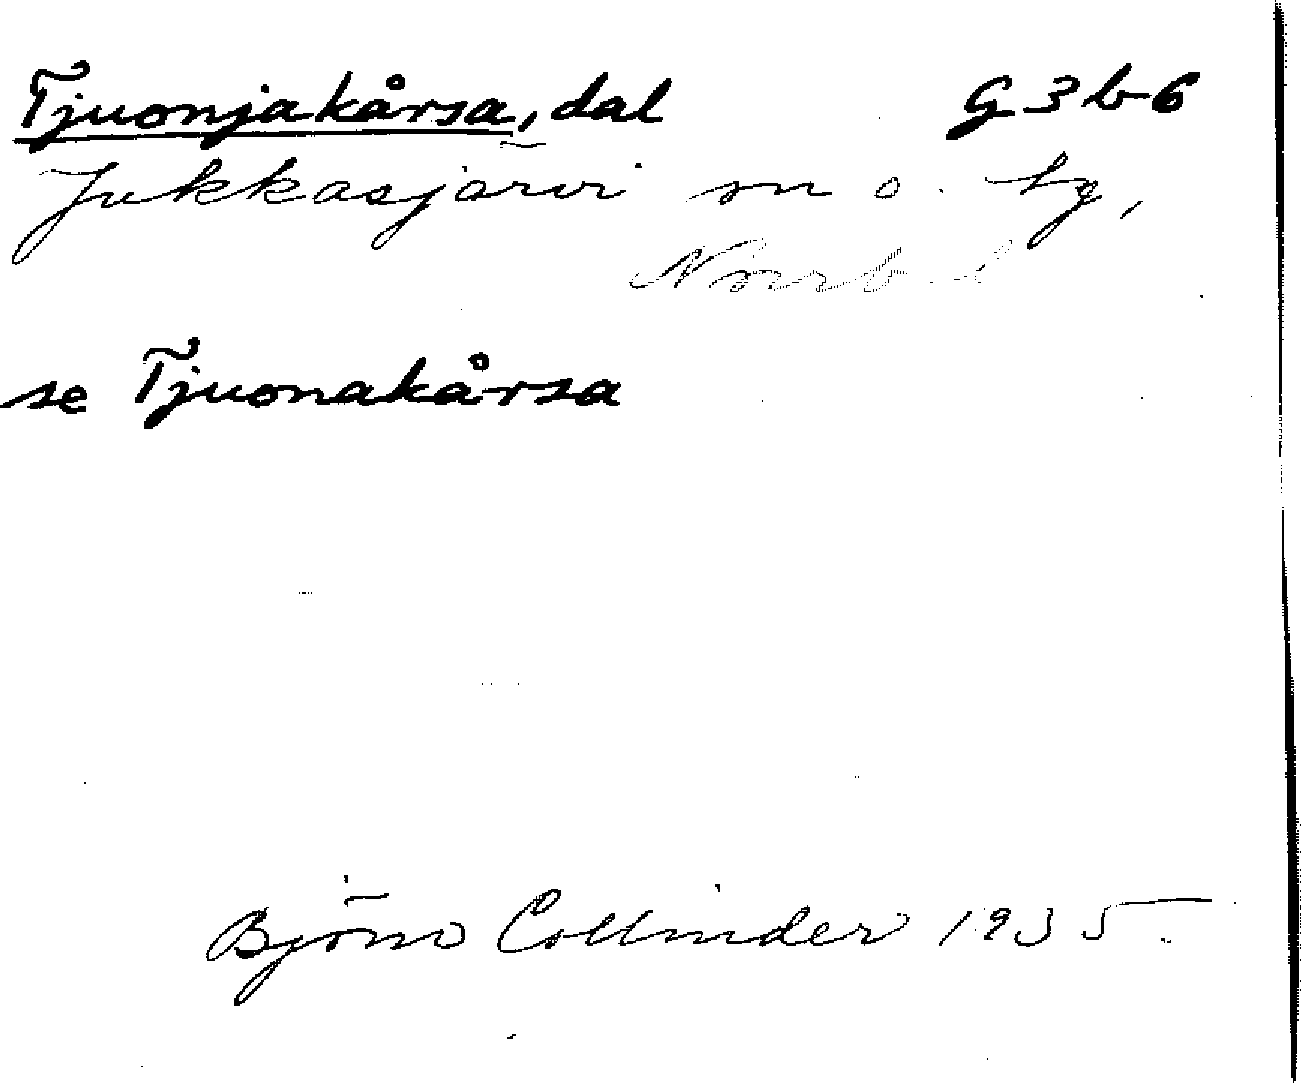 Tjuonjakårsa, dal G 3 b 6
Jukkasjärvi sn o. tg,
Norrb. l
se Tjuonakårsa
Björn Collinder 1935.